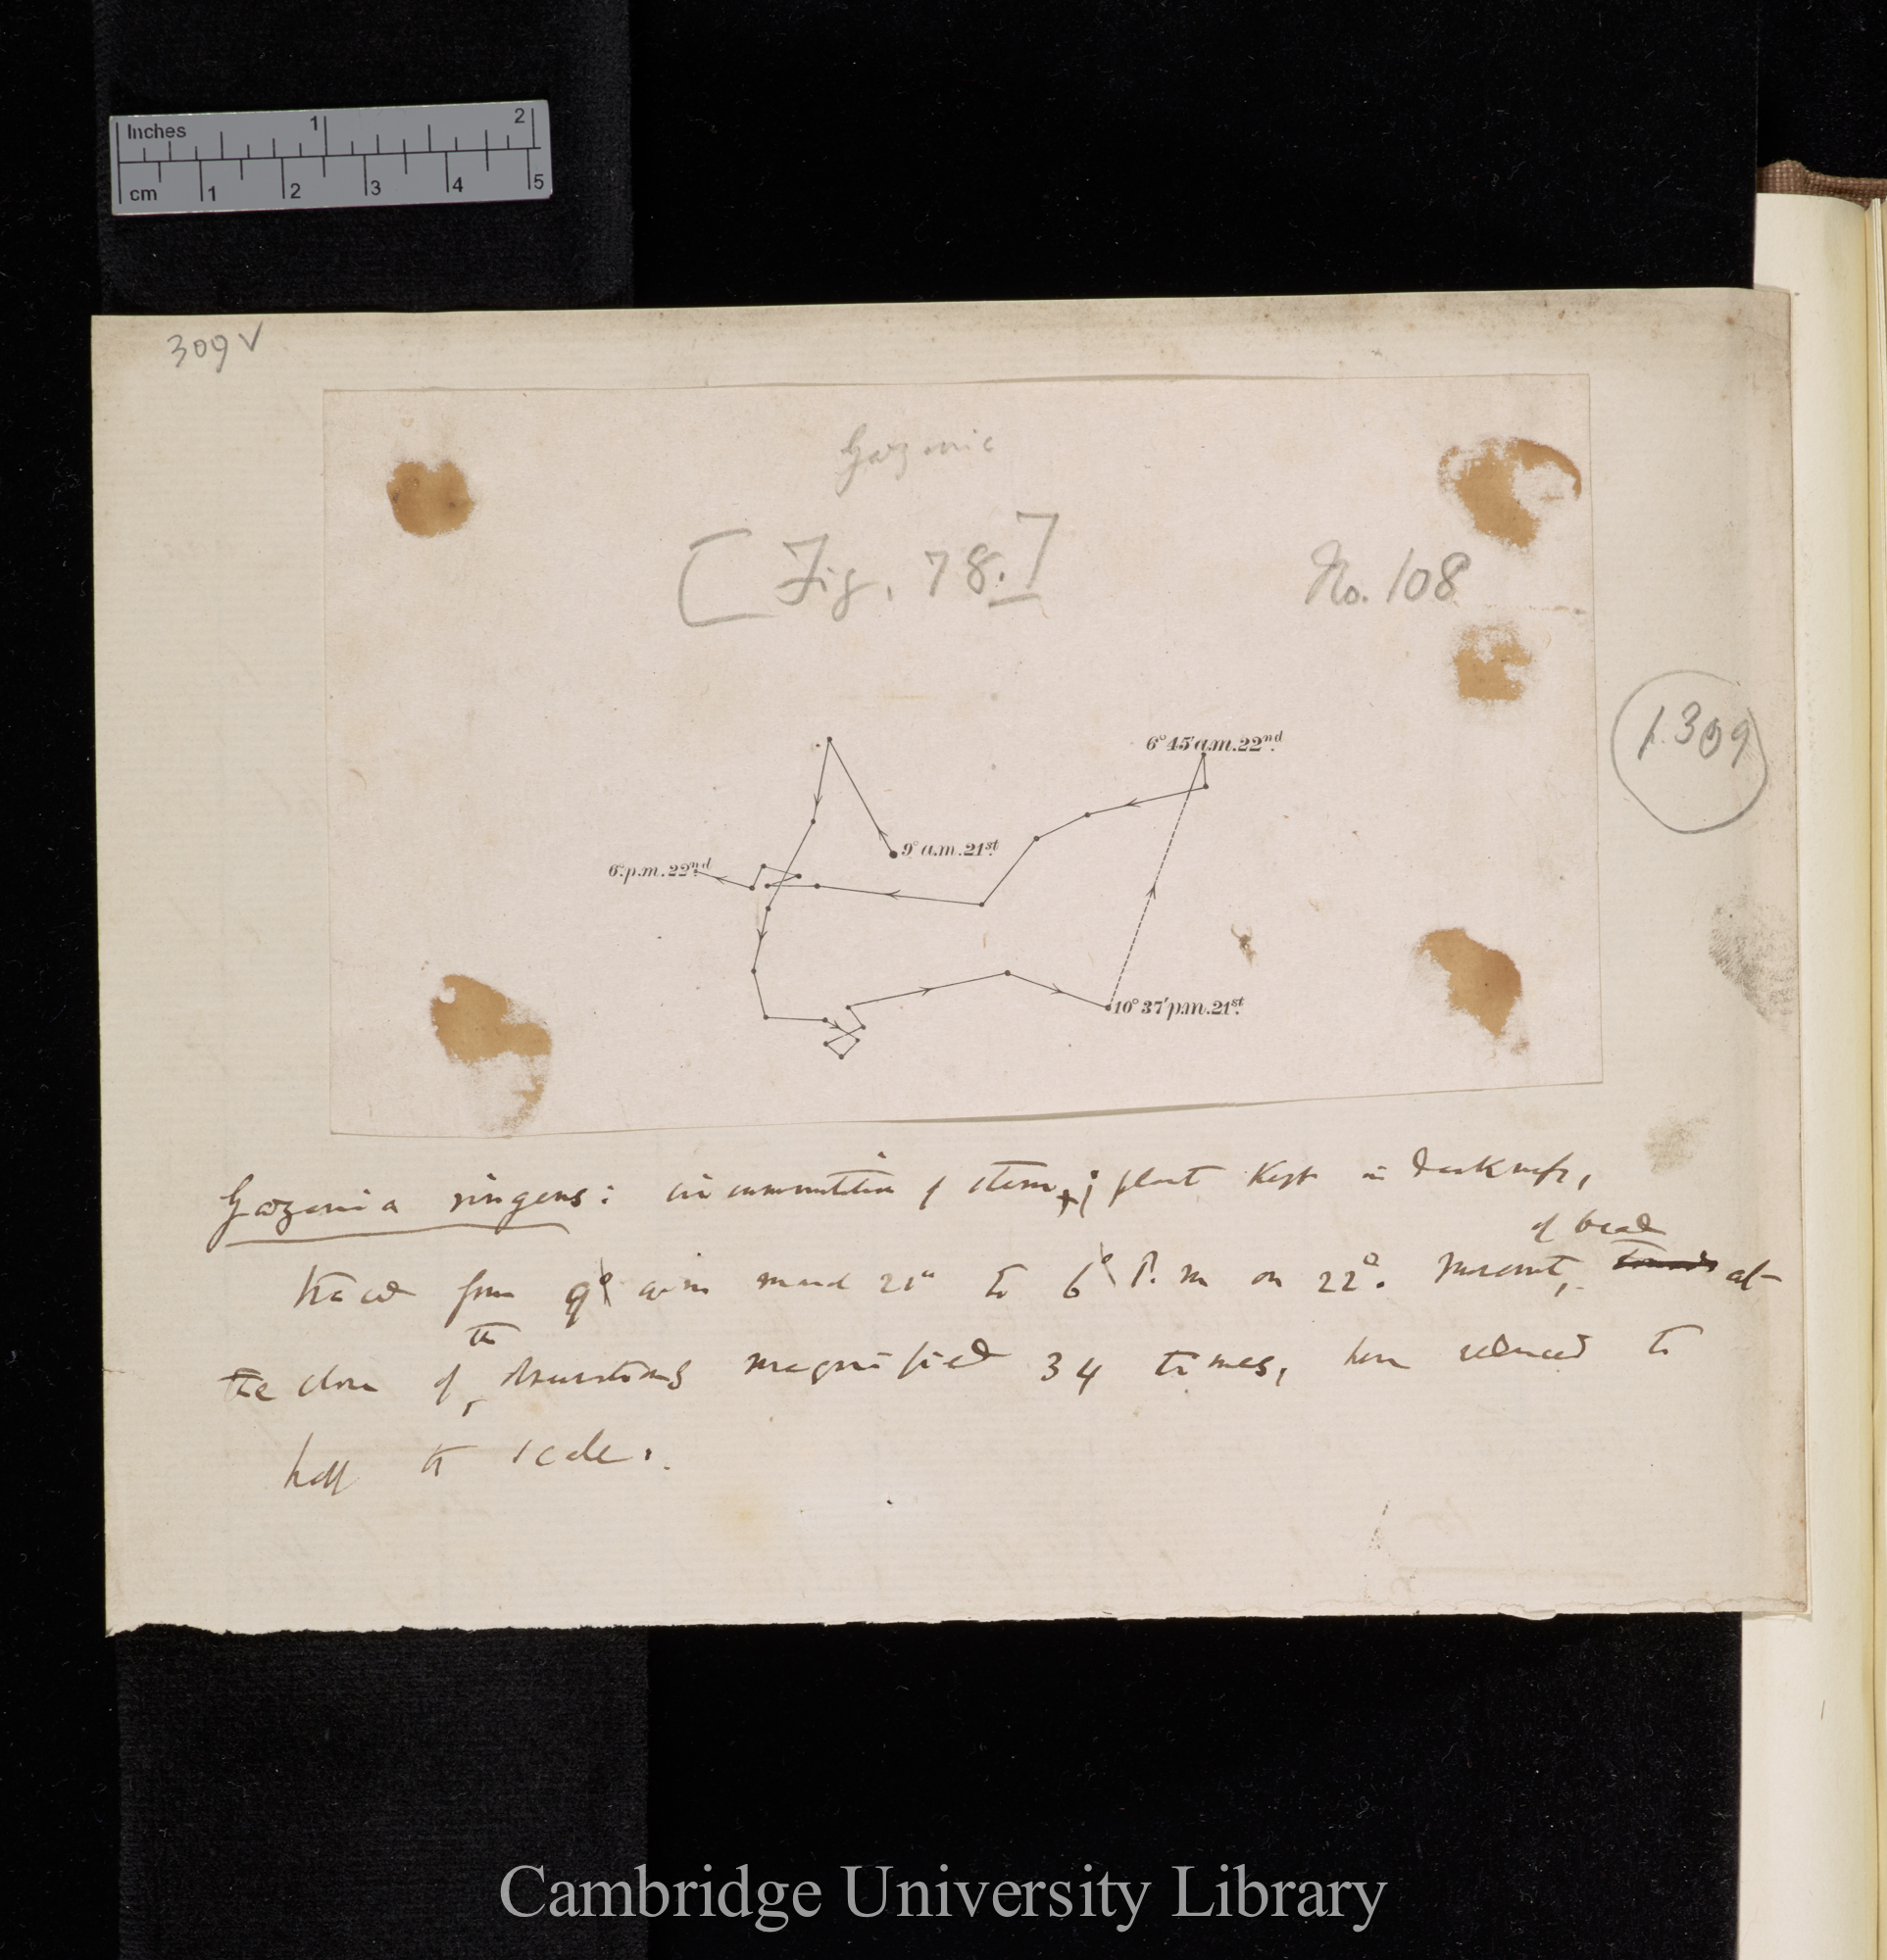 Inches 1 2
cm 1 2 3 4 5
309 V
Gazania
[Fig. 78.]
No. 108
6° 45' a.m. 22nd.
9° a.m. 21st.
6° p.m. 22nd.
10° 37' p.m. 21st.
p. 309
Gazania ringens: circumnutation of stem, plant kept in darkness,
of bead
traced from 9° a.m. March 21st to 6° P.m on 22d. Movement, at
the
the close of observations magnified 34 times, here reduced to
half the scale.
Cambridge University Library